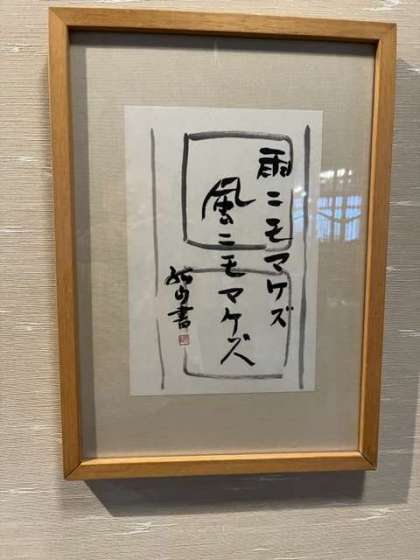 雨ニモマケズ
風ニモマケズ
書